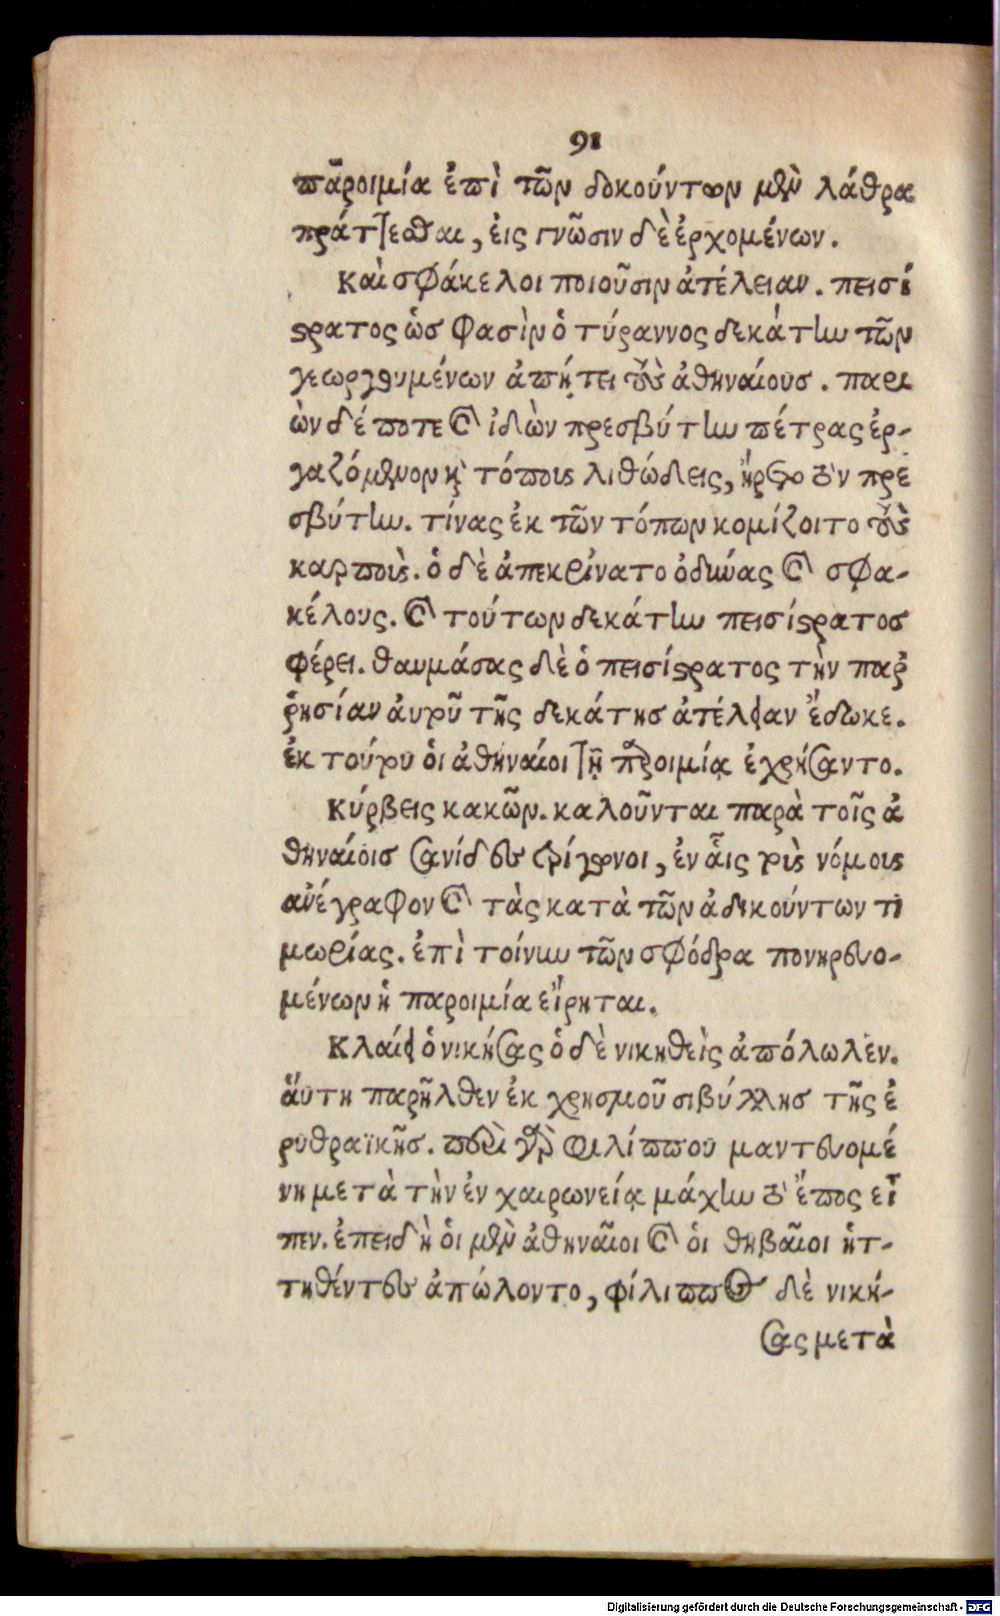 91
παροιμία ἐπὶ τῶν δοκούντων μὲν λάθρα
πράττεσθαι, εἰς γνῶσιν δὲ ἐρχομένων.
Καὶ σφάκελοι ποιοῦσιν ἀτέλειαν. πεισί
στρατος ὡσ φασὶν ὁ τύραννος δεκάτην τῶν
γεωργουμένων ἀπῄτει τοὺς ἀθηναίουσ. παρι
ὼν δέ ποτε καὶ ἰδὼν πρεσβύτην πέτρας ἐρ-
γαζόμενον καὶ τόπους λιθώδεις, ἤρετο τὸν πρε
σβύτην. τίνας ἐκ τῶν τόπων κομίζοιτο τοὺς
καρπούς. ὁ δὲ ἀπεκρίνατο ὀδύνας καὶ σφα-
κέλους. καὶ τούτων δεκάτην πεισίστρατοσ
φέρει. θαυμάσας δὲ ὁ πεισίστρατος τὴν παῤ
ῥησίαν ἀυτοῦ τῆς δεκάτησ ἀτέλειαν ἔδωκε.
ἐκ τούτου ὁι ἀθηναίοι τῇ παροιμίᾳ ἐχρήσαντο.
Κύρβεις κακῶν. καλοῦνται παρὰ τοῖς ἀ
θηναίοισ σανίδες τρίγωνοι, ἐν ἇις τοὺς νόμους
ἀνέγραφον καὶ τὰς κατὰ τῶν ἀδικούντων τι
μωρίας. ἐπὶ τοίνυν τῶν σφόδρα πονηρευο-
μένων ἡ παροιμία εἴρηται.
Κλαίει ὁ νικήσας ὁ δὲ νικηθεὶς ἀπόλωλεν.
ἅυτη παρῆλθεν ἐκ χρησμοῦ σιβύλλησ τῆς ἐ
ρυθραϊκῆσ. περὶ γὰρ φιλίππου μαντευομέ
νη μετὰ τὴν ἐν χαιρωνείᾳ μάχην τὸ ἔπος εἶ
πεν. ἐπειδὴ ὁι μὲν ἀθηναῖοι καὶ ὁι θηβαῖοι ἡτ-
τηθέντες ἀπώλοντο, φίλιππος δὲ νική-
σας μετὰ
Digitalisierung gefördert durch die Deutsche Forschungsgemeinschaft - DFG